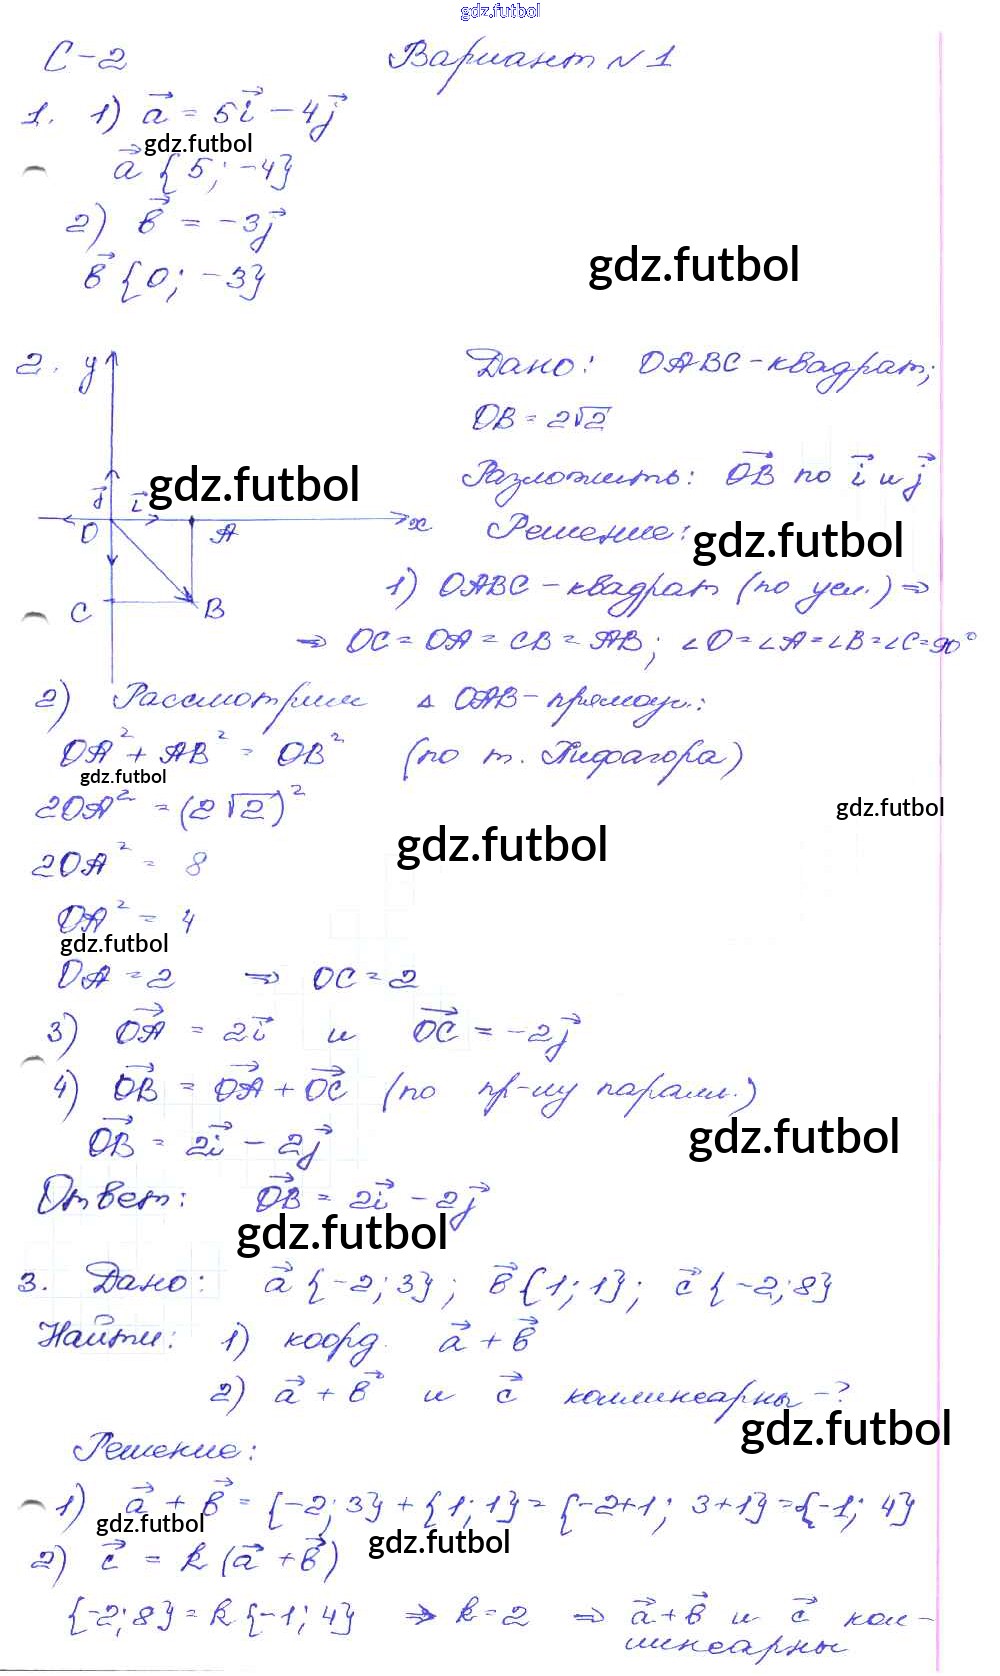 gdz.futbol
С-2 Вариант №1
1. 1) a⃗ = 5i⃗ - 4j⃗
gdz.futbol
a⃗ {5; -4}
2) в⃗ = -3j⃗
gdz.futbol
в⃗ {0; -3}
2. y Дано: OABC - квадрат;
OB = 2√2
gdz.futbol
j⃗ i⃗ Разложить: OB⃗ по i⃗ и j⃗
O A x Решение: gdz.futbol
1) OABC - квадрат (по усл.) ⇒
C B
⇒ OC = OA = CB = AB; ∠O = ∠A = ∠B = ∠C = 90°
2) Рассмотрим △ OAB - прямоуг.:
OA² + AB² = OB² (по т. Пифагора)
gdz.futbol
2OA² = (2√2)² gdz.futbol
gdz.futbol
2OA² = 8
OA² = 4
gdz.futbol
OA = 2 ⇒ OC = 2
3) OA⃗ = 2i⃗ и OC⃗ = -2j⃗
4) OB⃗ = OA⃗ + OC⃗ (по пр-лу паралл.)
gdz.futbol
OB⃗ = 2i⃗ - 2j⃗
Ответ: OB⃗ = 2i⃗ - 2j⃗
gdz.futbol
3. Дано: a⃗ {-2; 3}; в⃗ {1; 1}; c⃗ {-2; 8}
Найти: 1) коорд. a⃗ + в⃗
2) a⃗ + в⃗ и c⃗ коллинеарны - ?
gdz.futbol
Решение:
1) a⃗ + в⃗ = {-2; 3} + {1; 1} = {-2+1; 3+1} = {-1; 4}
gdz.futbol gdz.futbol
2) c⃗ = k (a⃗ + в⃗)
{-2; 8} = k {-1; 4} ⇒ k = 2 ⇒ a⃗ + в⃗ и c⃗ кол-
линеарны